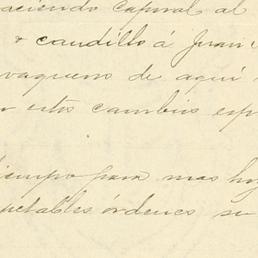 aciendo caporal al
& caudillo á Juan
vaquero de aquí
estos cambios esp
tiempo para mas hoy
petables órdenes su